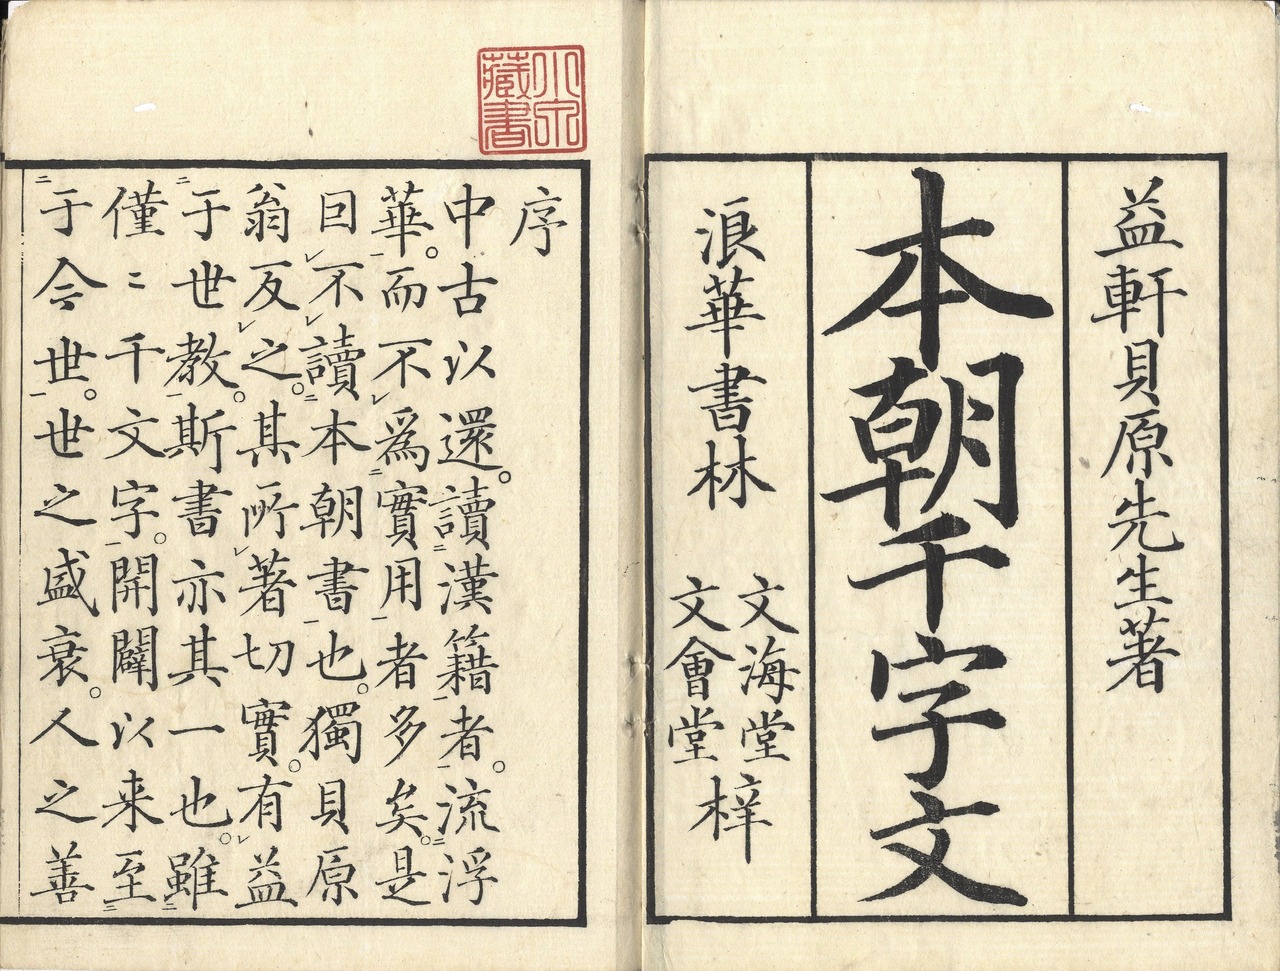 益軒貝原先生著
本朝千字文
浪華書林
文海堂
文會堂
梓
序
中古以還。讀漢籍者。流浮
華。而不爲實用者多矣。是
囙不讀本朝書也。獨貝原
翁反之。其所著切實。有益
于世教。斯書亦其一也。雖
僅〻千文字。開闢以来至
于今世。世之盛衰。人之善
藏書